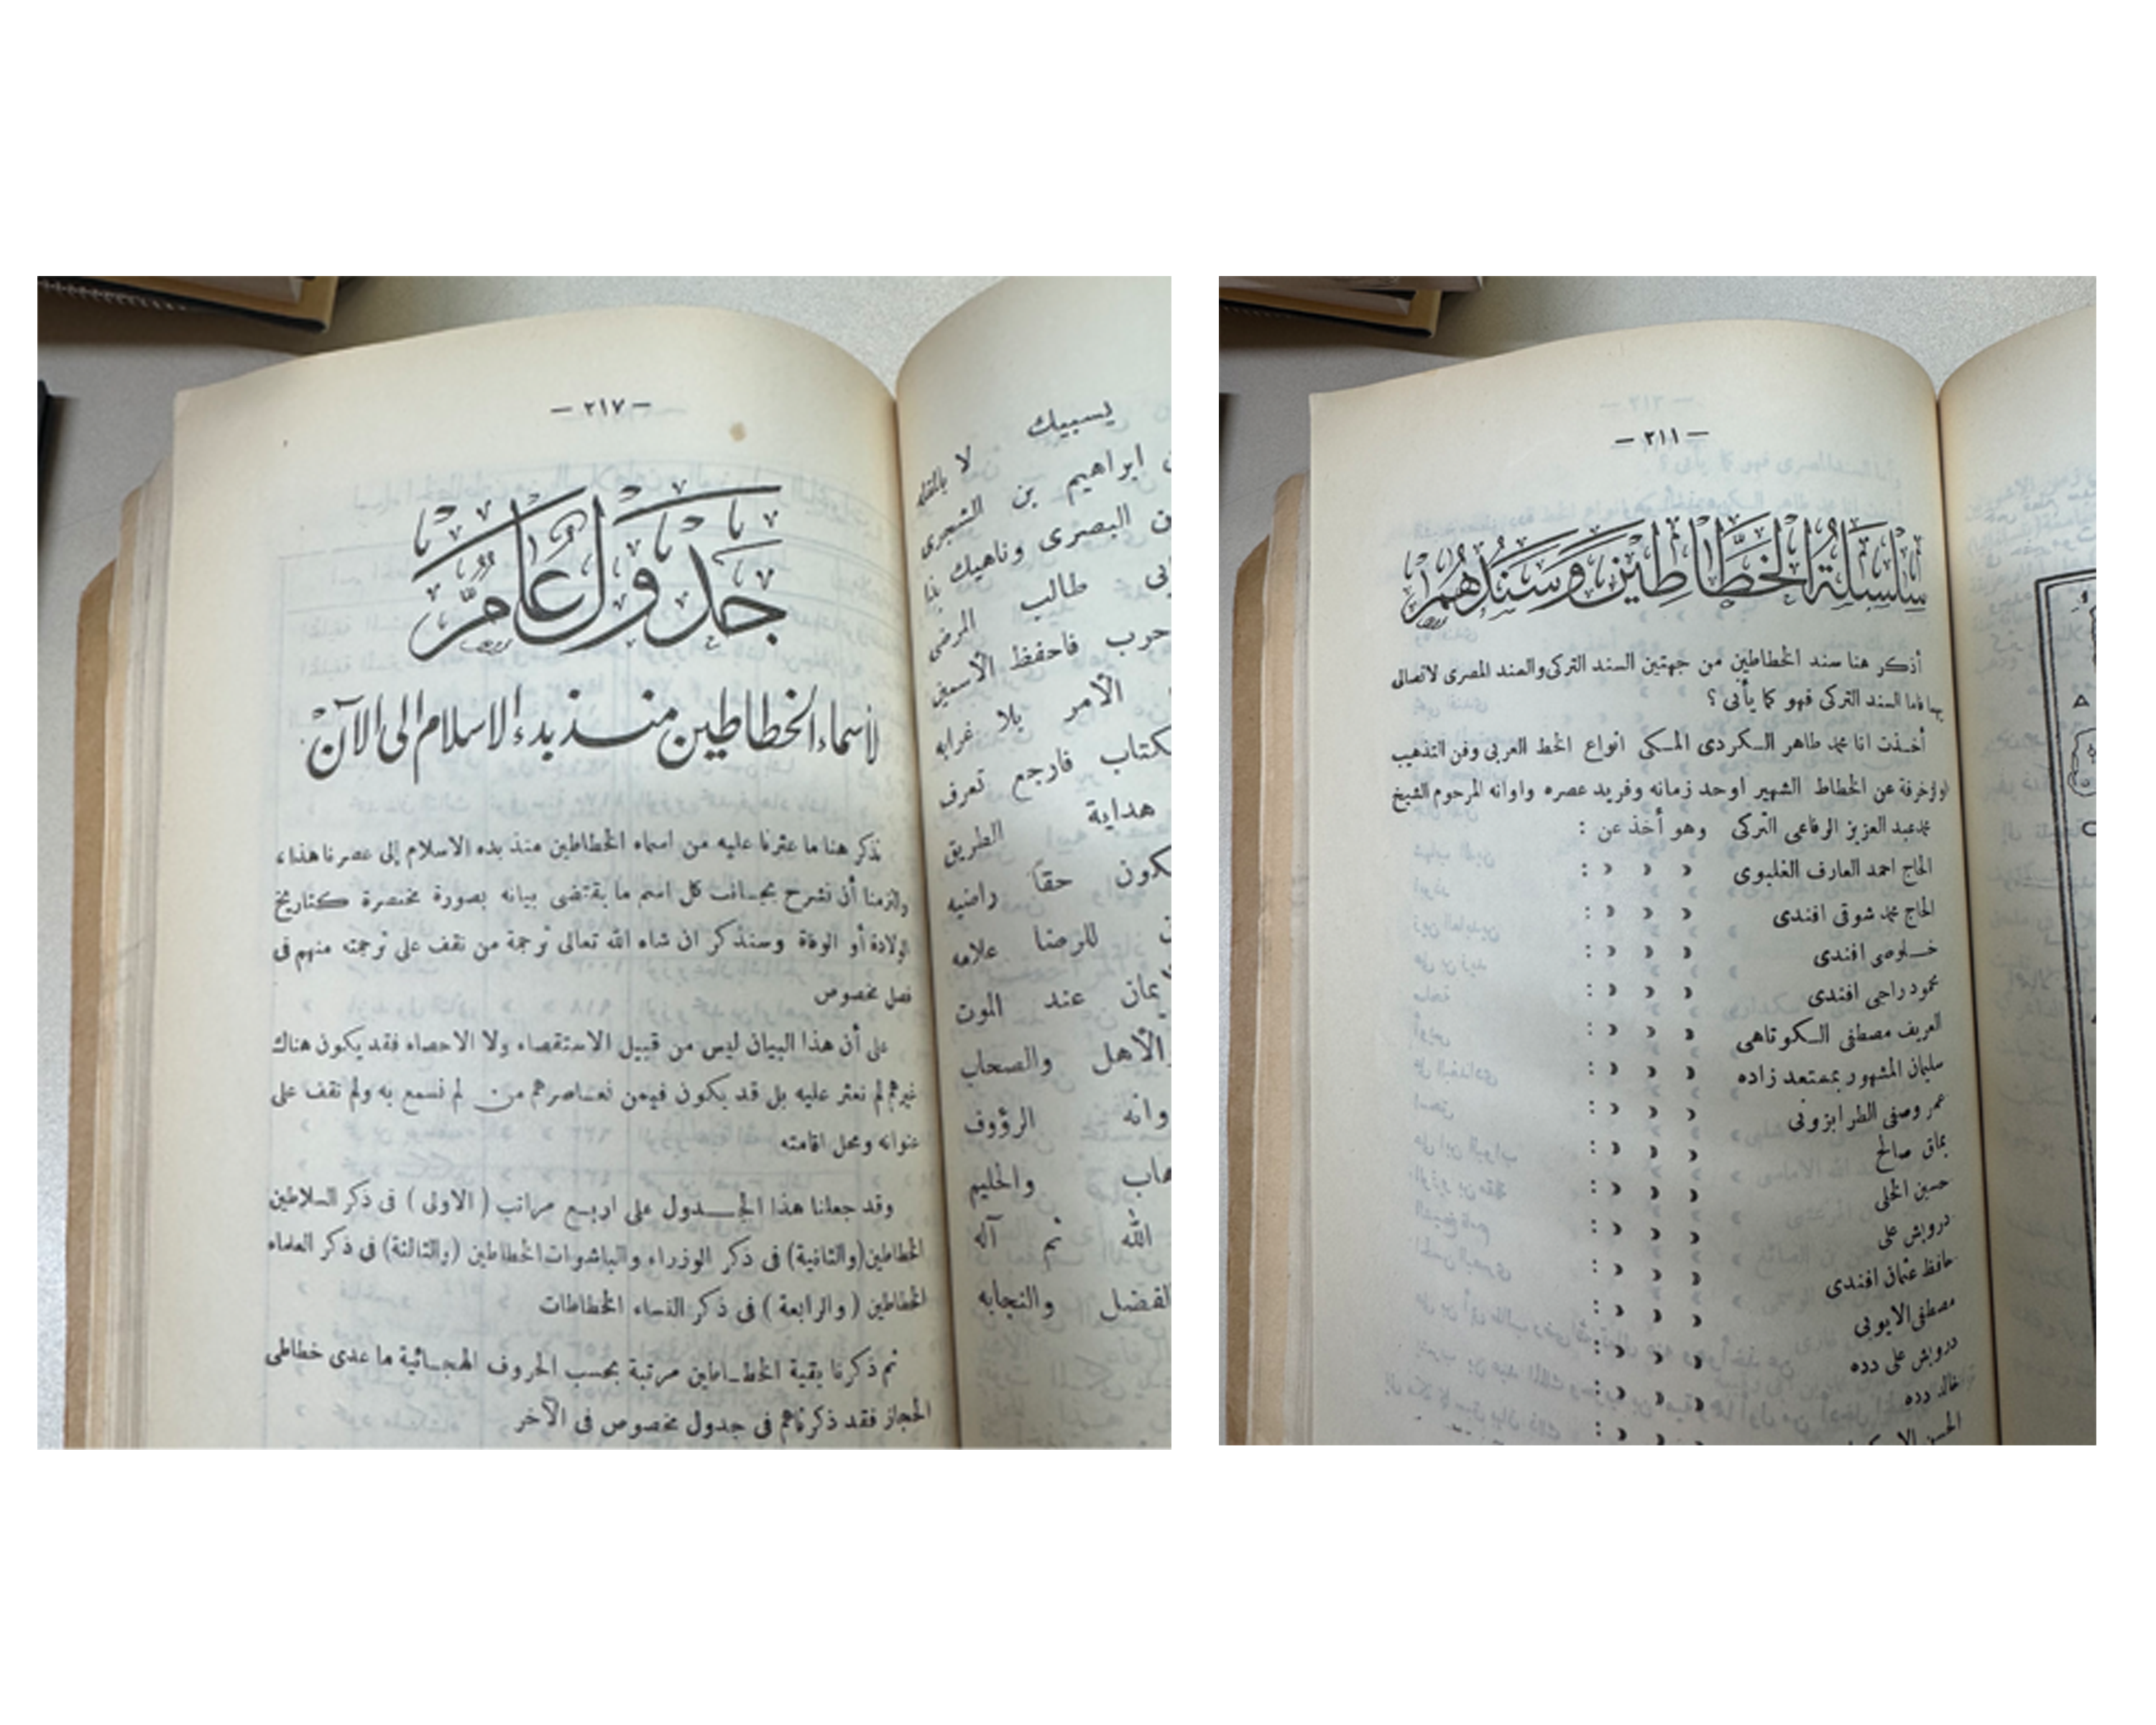 — ٢١٧ —
جدول عام
لأسماء الخطاطين منذ بدء الاسلام الى الآن
نذكر هنا ما عثرنا عليه من اسماء الخطاطين منذ بدء الاسلام إلى عصرنا هذا
والتزمنا أن نشرح بجانب كل اسم ما يقتضى بيانه بصورة مختصرة كتاريخ
الولادة أو الوفاة وسنذكر ان شاء الله تعالى ترجمة من نقف على ترجمته منهم فى
فصل مخصوص
على أن هذا البيان ليس من قبيل الاستقصاء ولا الاحصاء فقد يكون هناك
غيرهم لم نعثر عليه بل قد يكون فيمن نعاصرهم من لم نسمع به ولم نقف على
عنوانه ومحل اقامته
وقد جعلنا هذا الجدول على اربع مراتب ( الاولى ) فى ذكر السلاطين
الخطاطين (والثانية) فى ذكر الوزراء والباشوات الخطاطين (والثالثة) فى ذكر العلماء
الخطاطين ( والرابعة ) فى ذكر النساء الخطاطات
ثم ذكرنا بقية الخطاطين مرتبة بحسب الحروف الهجائية ما عدى خطاطى
الحجاز فقد ذكرناهم فى جدول مخصوص فى الآخر
يسبيك لا بالمقله
ابراهيم بن الشجرى
البصرى وناهيك بذا
طالب المرضى
حرب فاحفظ الأسمين
الأمر بلا غرابه
فارجع تعرف
هداية الطريق
حقاً راضيه
للرضا علامه
عند الموت
والأهل والصحاب
وانه الرؤوف
والحليم
الله ثم آله
والنجابه
— ٢١١ —
سلسلة الخطاطين وسندهم
أذكر هنا سند الخطاطين من جهتين السند التركى والسند المصرى لاتصالى
بهما فاما السند التركى فهو كما يأتى ؟
أخذت انا محمد طاهر الكردى المكى انواع الخط العربى وفن التذهيب
والزخرفة عن الخطاط الشهير اوحد زمانه وفريد عصره واوانه المرحوم الشيخ
محمد عبد العزيز الرفاعى التركى وهو أخذ عن :
الحاج احمد العارف الفلبوى » » » :
الحاج محمد شوقى افندى » » » :
خلوصى افندى » » » :
محمود راجى افندى » » » :
العريف مصطفى الكوتاهى » » » :
سليمان المشهور بمستعد زاده » » » :
عمر وصفى الطرابزونى » » » :
بماق صالح » » » :
حسين الخلى » » » :
درويش على » » » :
حافظ عثمان افندى » » » :
مصطفى الايوبى » » » :
درويش على دده » » » :
خالد دده » » » :